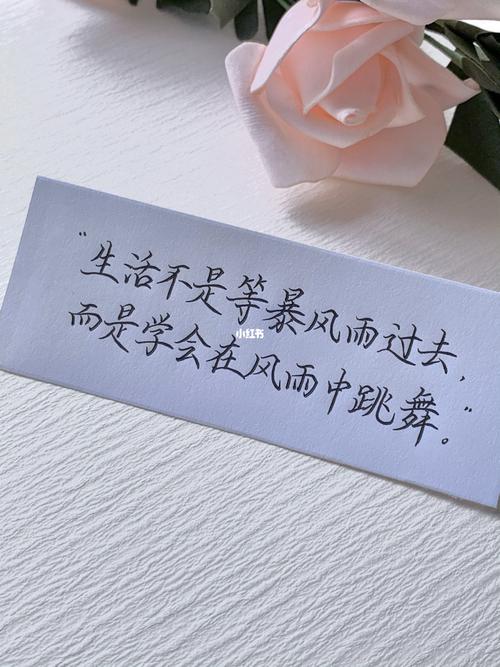 “生活不是等暴风雨过去,
而是学会在风雨中跳舞。”
小红书